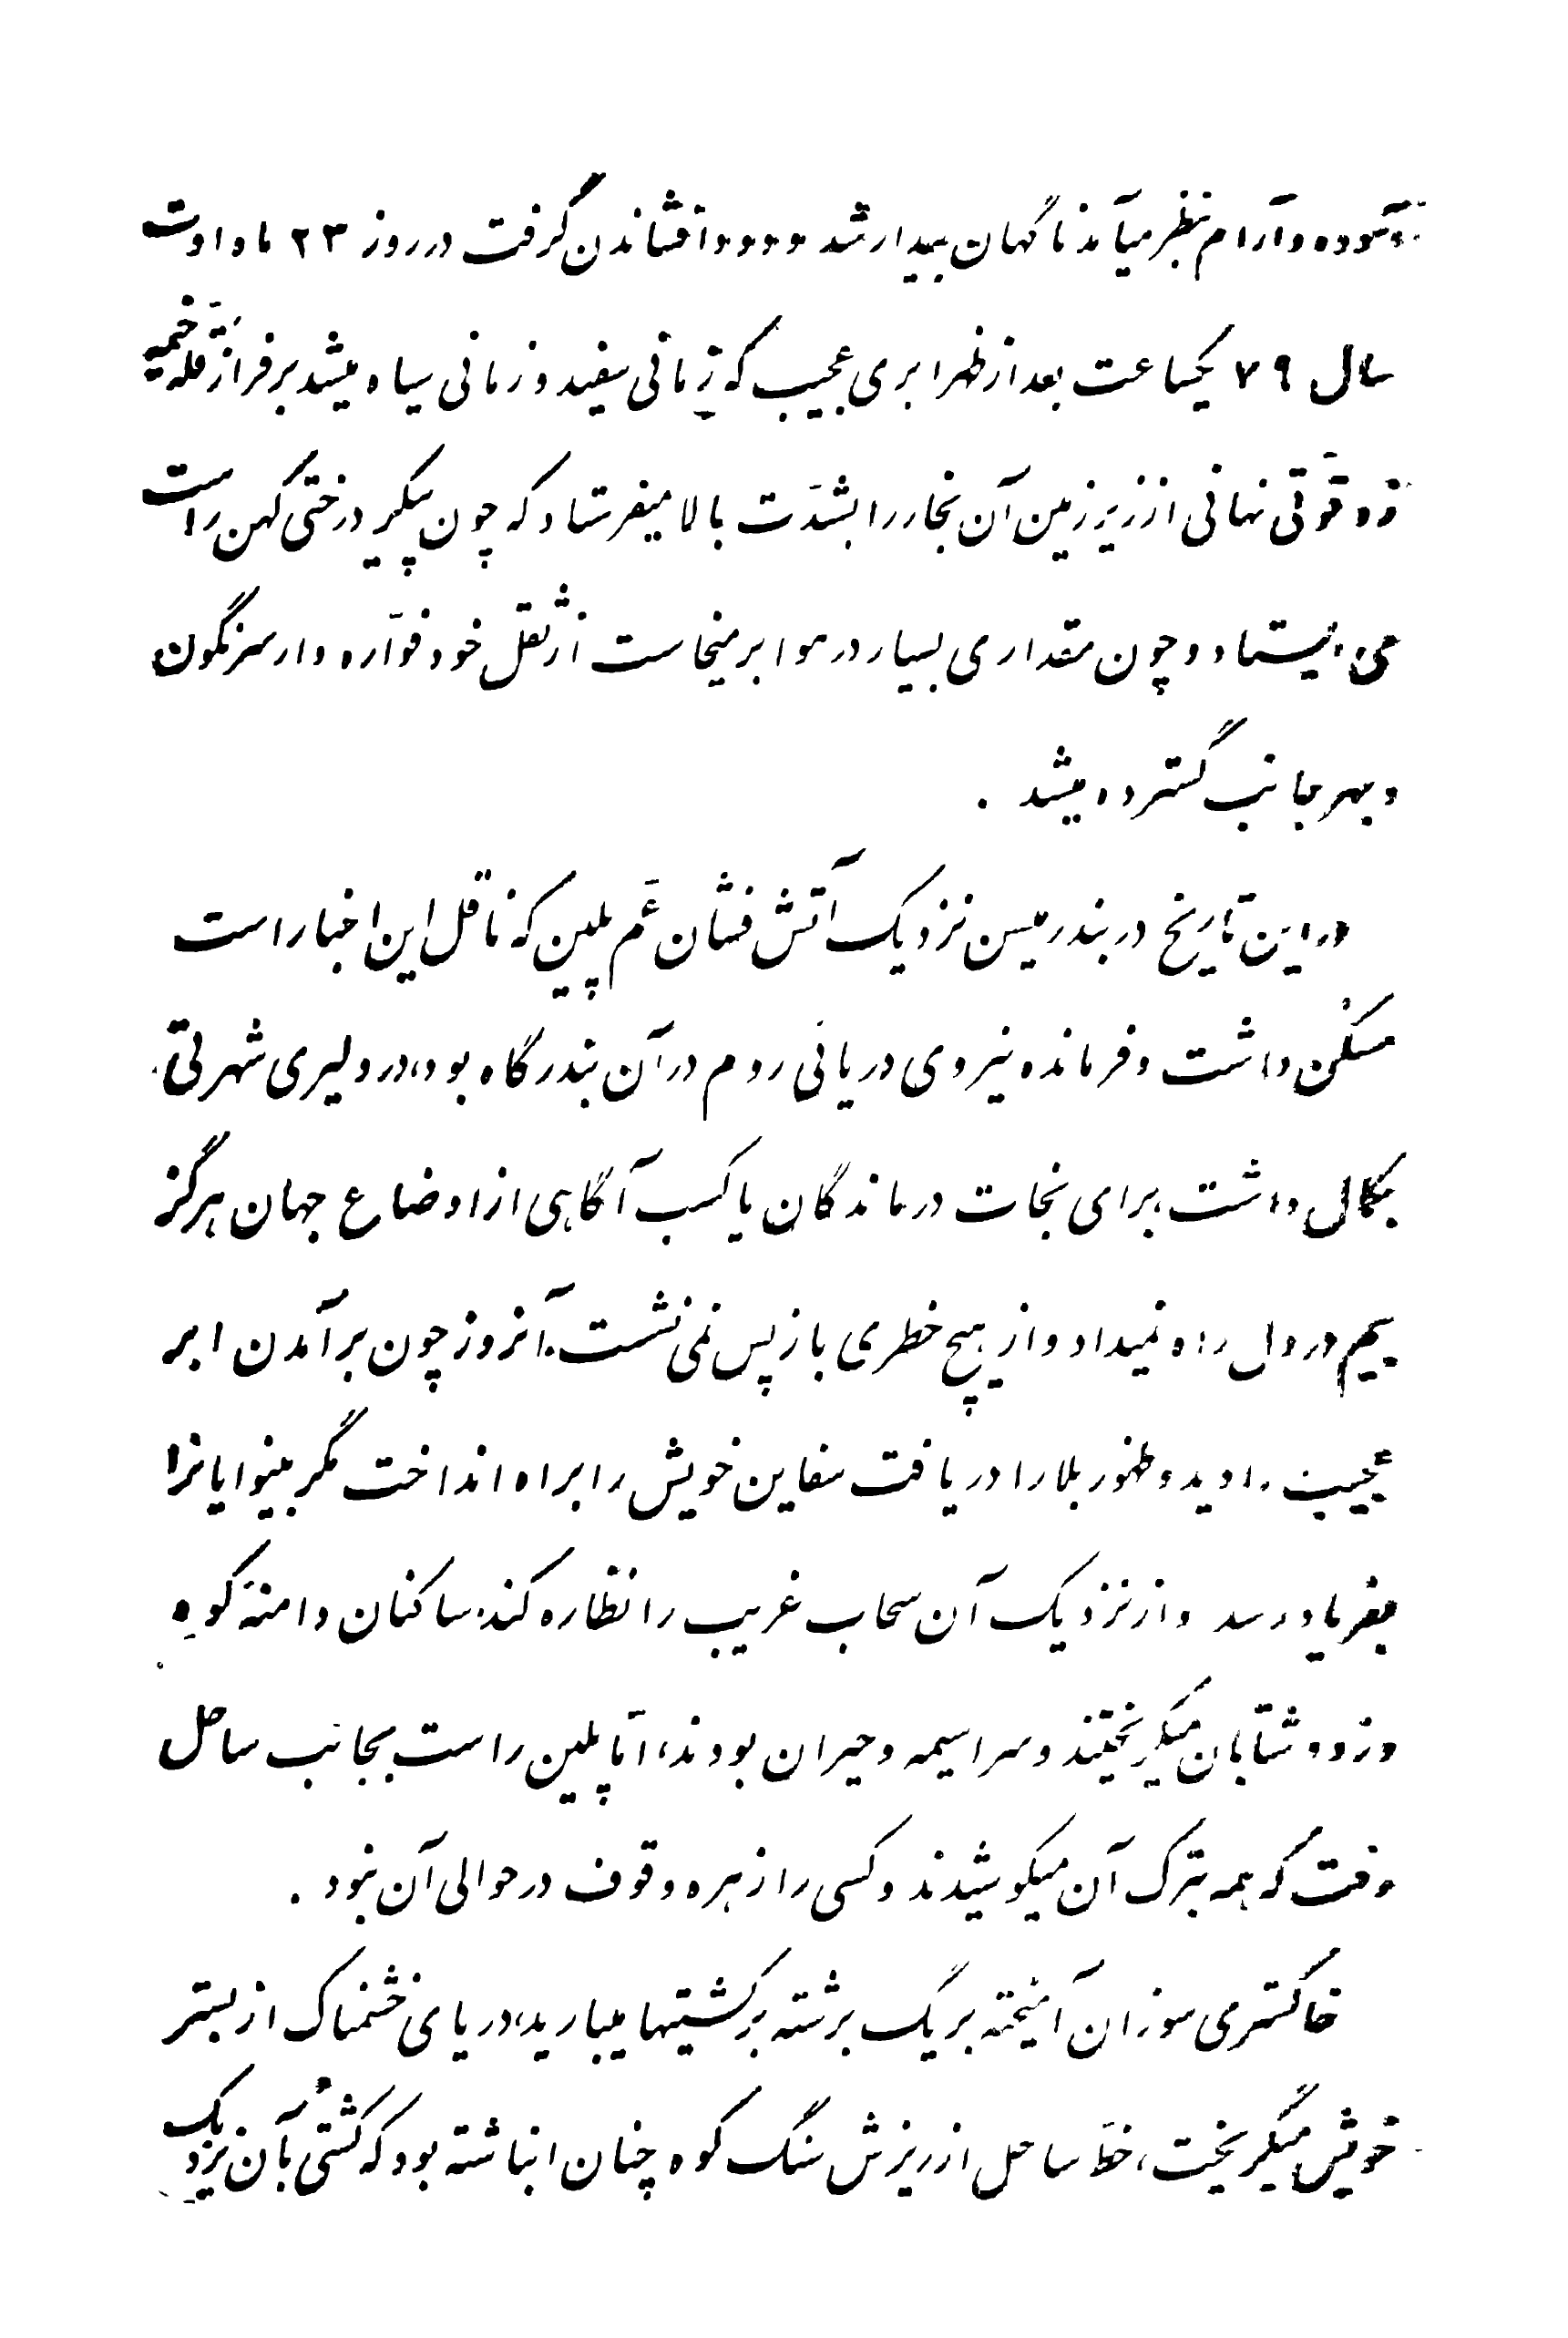 آسوده و آرام بنظر میآمد ناگهان بیدار شد و دود افشاندن گرفت در روز ۲۳ ماه اوت
سال ۷۹ یکساعت بعد از ظهر ابری عجیب که زمانی سفید و زمانی سیاه میشد بر فراز قله خیمه
زد و قوّتی نهانی از زیر زمین آن بخار را بشدّت بالا میفرستاد که چون پیکر درختی کهن راست
می‌ایستاد و چون مقداری بسیار در هوا بر میخاست از ثقل خود فوّاره وار سرنگون
و بهر جانب گسترده میشد .
در این تاریخ در بندر میسن نزدیک آتش فشان عَم پلین که ناقل این اخبار است
مسکن داشت و فرمانده نیروی دریائی روم در آن بندرگاه بود، در دلیری شهرتی
بکمال داشت، برای نجات درماندگان یا کسب آگاهی از اوضاع جهان هرگز
بیم در دل راه نمیداد و از هیچ خطری باز پس نمی‌نشست. آنروز چون برآمدن ابر
عجیب را دید و ظهور بلا را دریافت سفاین خویش را براه انداخت مگر بینوایانرا
بفریاد رسد و از نزدیک آن سحاب غریب را نظاره کند. ساکنان دامنهٔ کوه
وزوو شتابان میگریختند و سراسیمه و حیران بودند، امّا پلین راست بجانب ساحل
رفت که همه بترک آن میکوشیدند و کسی را زهره وقوف در حوالی آن نبود .
خاکستری سوزان آمیخته بریگ برشته بر کشتیها میبارید، دریای خشمناک از بستر
خویش میگریخت، خطّ ساحل از ریزش سنگ کوه چنان انباشته بود که کشتی بآن نزدیک